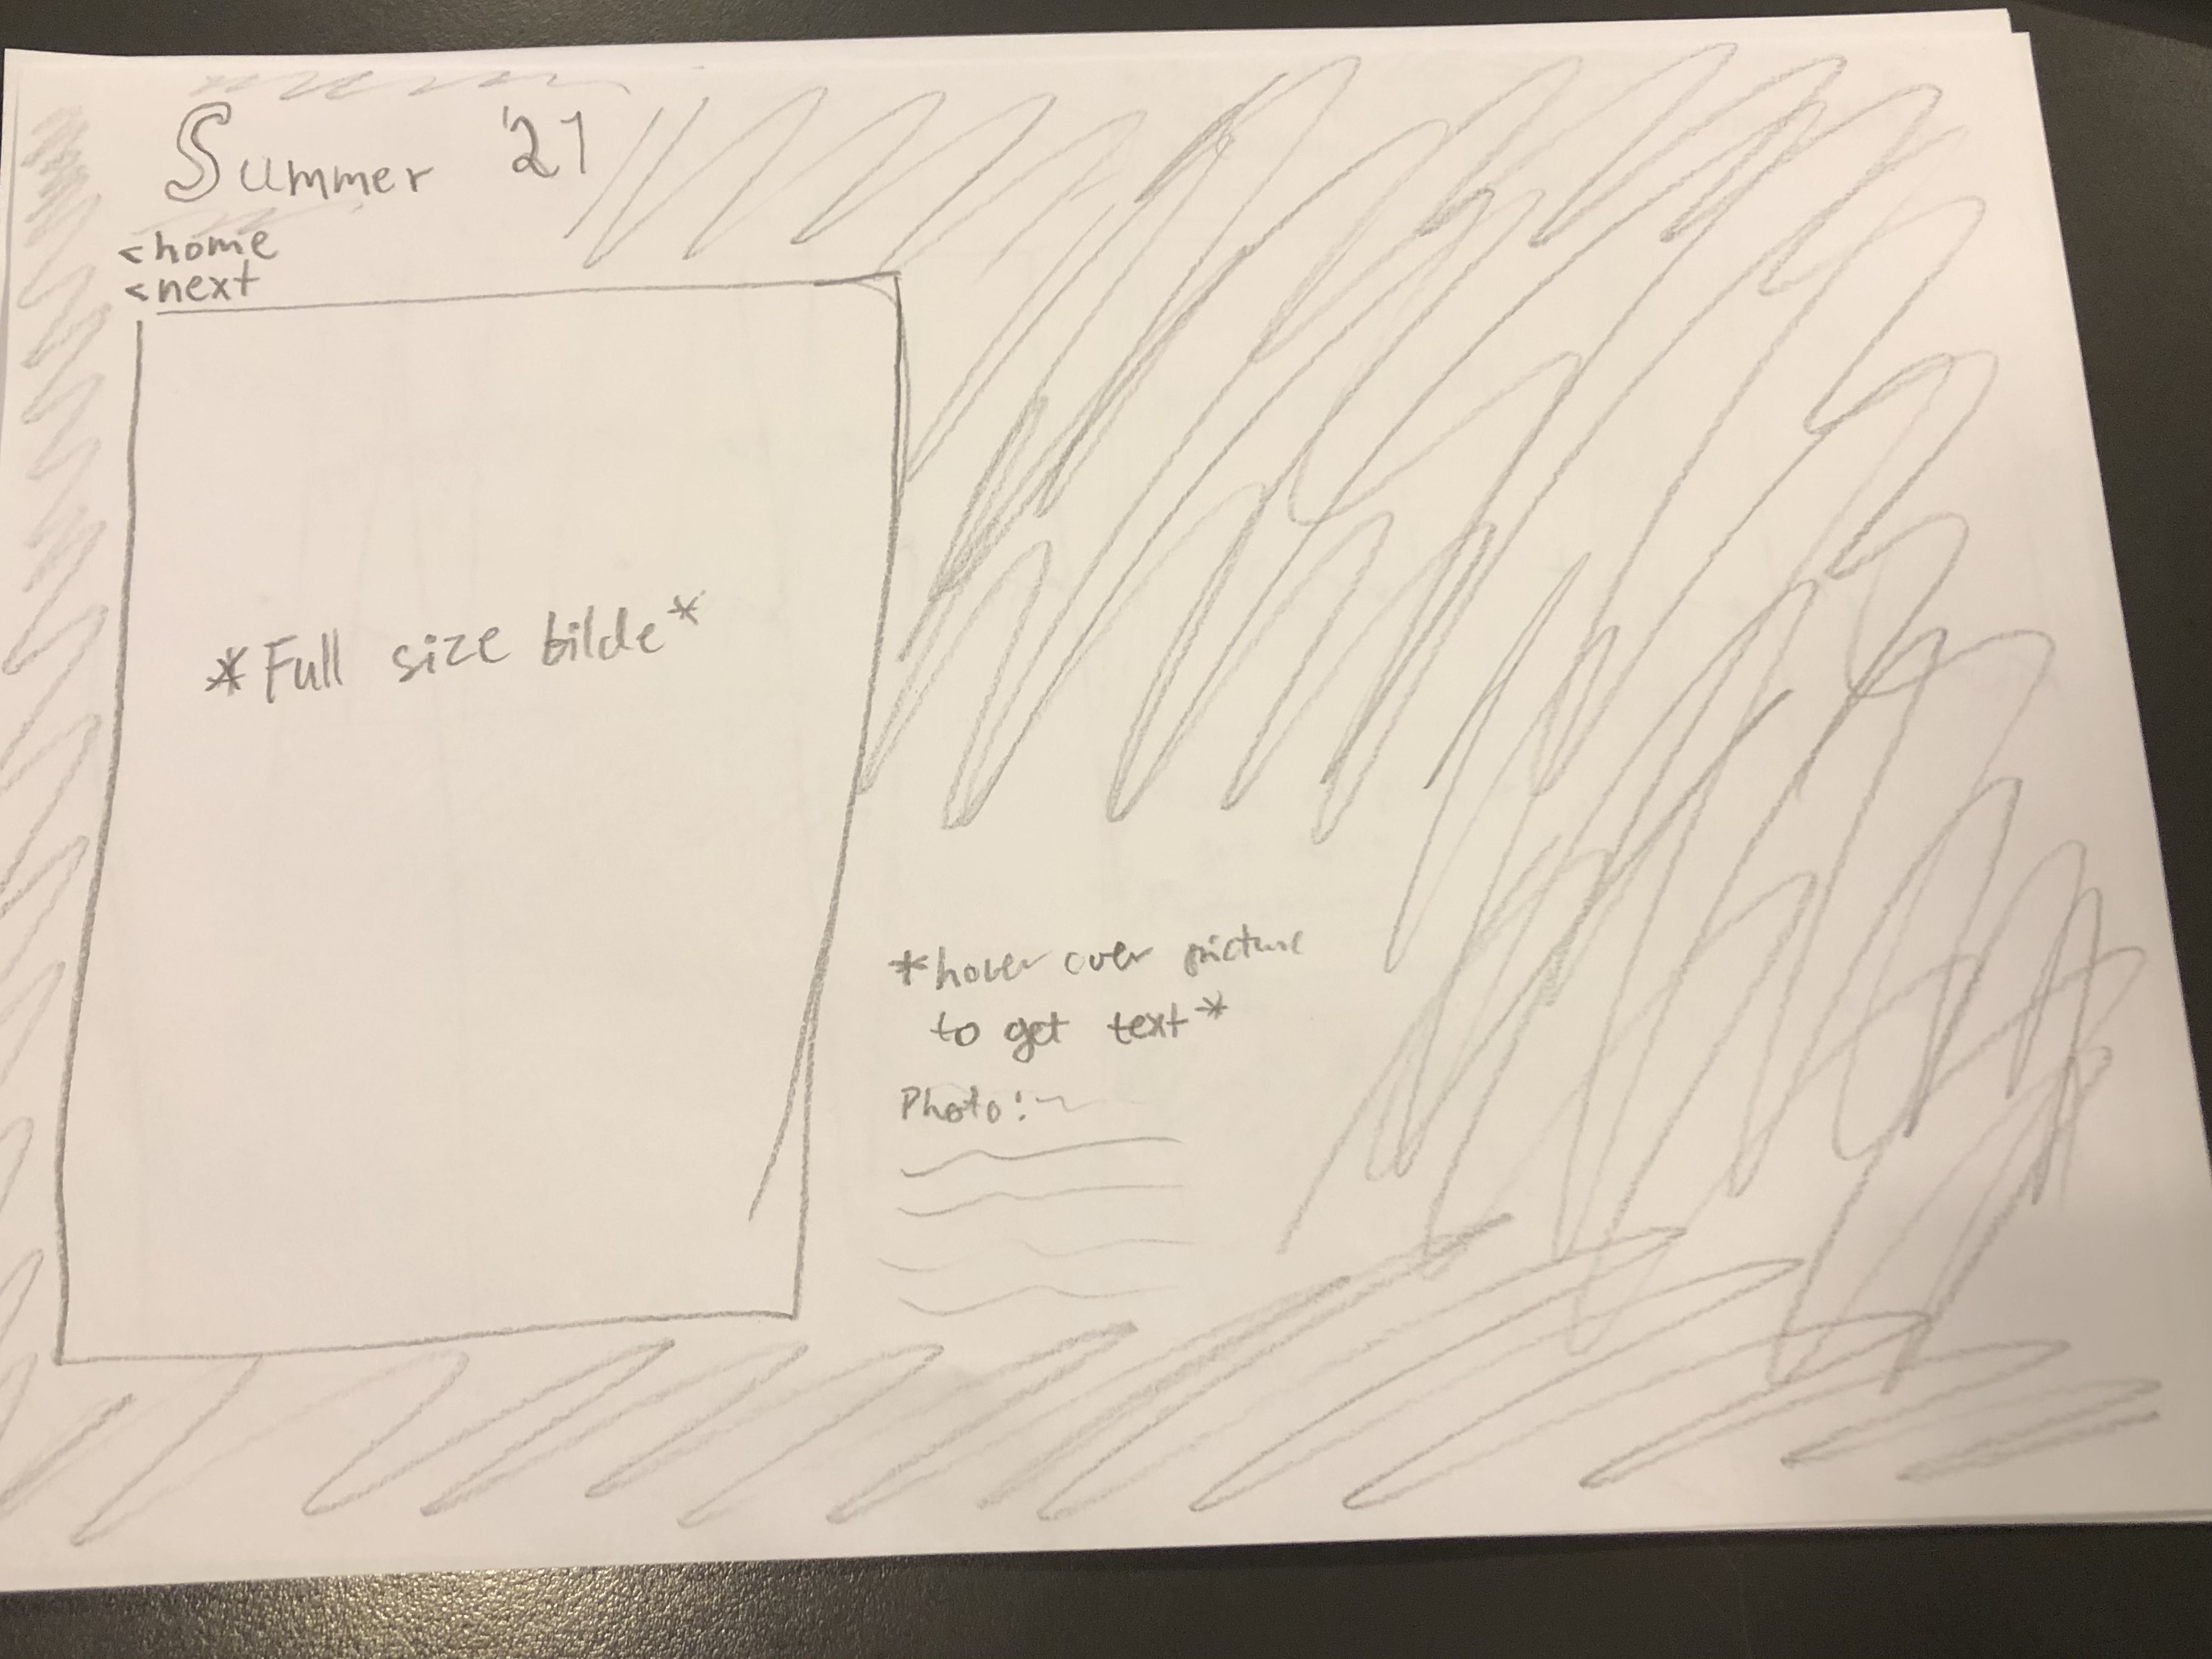 Summer '21
<home
<next
*Full size bilde*
*hover over picture
to get text*
Photo: